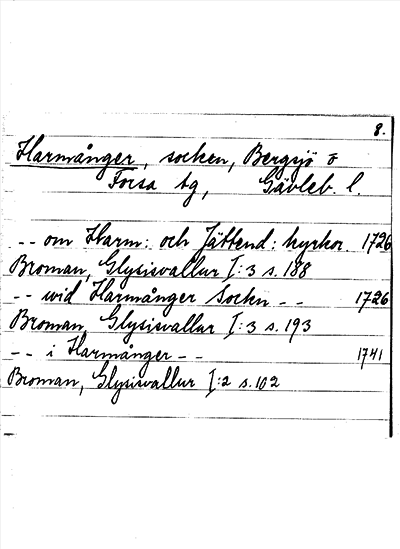 8.
Harmånger, socken, Bergsjö o
Forsa tg, Gävleb. l.
-- om Harm: och Jättend: kyrkor. 1726
Broman, Glysisvallur I:3 s. 188
-- wid Harmånger Sockn -- 1726
Broman, Glysisvallur I:3 s. 193
-- i Harmånger -- 1741
Broman, Glysisvallur I:2 s. 102